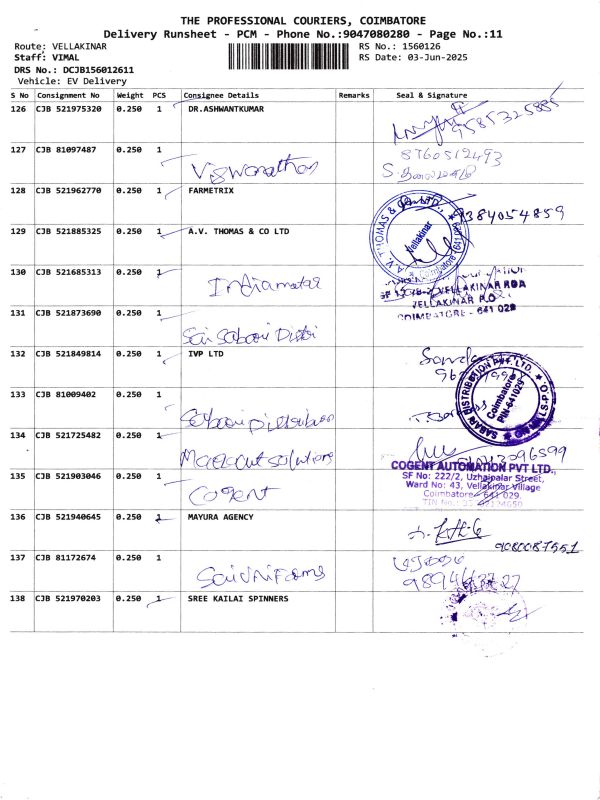 THE PROFESSIONAL COURIERS, COIMBATORE
Delivery Runsheet - PCM - Phone No.:9047080280 - Page No.:11
Route: VELLAKINAR
RS No.: 1560126
Staff: VIMAL
RS Date: 03-Jun-2025
DRS No.: DCJB156012611
Vehicle: EV Delivery
S No Consignment No Weight PCS Consignee Details Remarks Seal & Signature
126 CJB 521975320 0.250 1 DR.ASHWANTKUMAR
9585325885
127 CJB 81097487 0.250 1
Viswanathan
8760512493
128 CJB 521962770 0.250 1 FARMETRIX
9384054859
129 CJB 521885325 0.250 1 A.V. THOMAS & CO LTD
A.V. THOMAS &
Vellakinar
Coimbatore
130 CJB 521685313 0.250 1
Indiamatar
VELLAKINAR ROA
VELLAKINAR P.O
COIMBATORE - 641 029
131 CJB 521873690 0.250 1
Sai Sabari Distri
132 CJB 521849814 0.250 1 IVP LTD
133 CJB 81009402 0.250 1
SABARI DISTRIBUTION PVT. LTD.
Coimbatore
PIN-641029
134 CJB 521725482 0.250 1
solutions
COGENT AUTOMATION PVT LTD.,
SF No: 222/2, Uzhaipalar Street,
Ward No: 43, Vellakinar Village
Coimbatore - 641 029.
135 CJB 521903046 0.250 1
Cogent
136 CJB 521940645 0.250 1 MAYURA AGENCY
9080087551
137 CJB 81172674 0.250 1
Sai Uniforms
138 CJB 521970203 0.250 1 SREE KAILAI SPINNERS